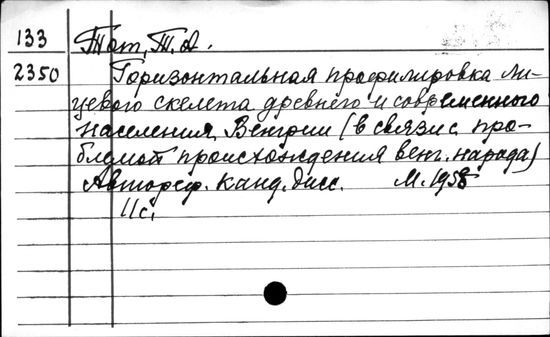 133 Тот, Т.А.
2350 Горизонтальная профилировка ли-
цевого скелета древнего и современного
населения Венгрии (в связи с про-
блемой происхождения венг. народа)
Автореф. канд. дисс. М. 1958
11с.